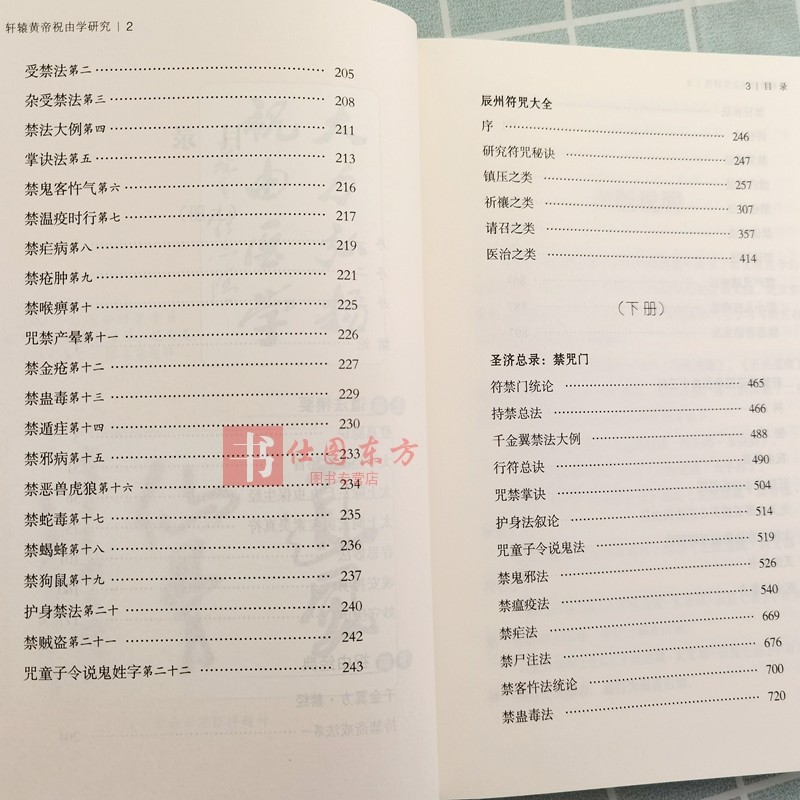 轩辕黄帝祝由学研究 | 2
受禁法第二 205
杂受禁法第三 208
禁法大例第四 211
掌诀法第五 213
禁鬼客忤气第六 216
禁温疫时行第七 217
禁疟病第八 219
禁疮肿第九 221
禁喉痹第十 225
咒禁产晕第十一 226
禁金疮第十二 227
禁蛊毒第十三 229
禁遁疰第十四 230
禁邪病第十五 233
禁恶兽虎狼第十六 234
禁蛇毒第十七 235
禁蝎蜂第十八 236
禁狗鼠第十九 237
护身禁法第二十 240
禁贼盗第二十一 242
咒童子令说鬼姓字第二十二 243
书 仕图东方
图书专营店
3 | 目 录
辰州符咒大全
序 246
研究符咒秘诀 247
镇压之类 257
祈禳之类 307
请召之类 357
医治之类 414
（下册）
圣济总录：禁咒门
符禁门统论 465
持禁总法 466
千金翼禁法大例 488
行符总诀 490
咒禁掌诀 504
护身法叙论 514
咒童子令说鬼法 519
禁鬼邪法 526
禁瘟疫法 540
禁疟法 669
禁尸注法 676
禁客忤法统论 700
禁蛊毒法 720